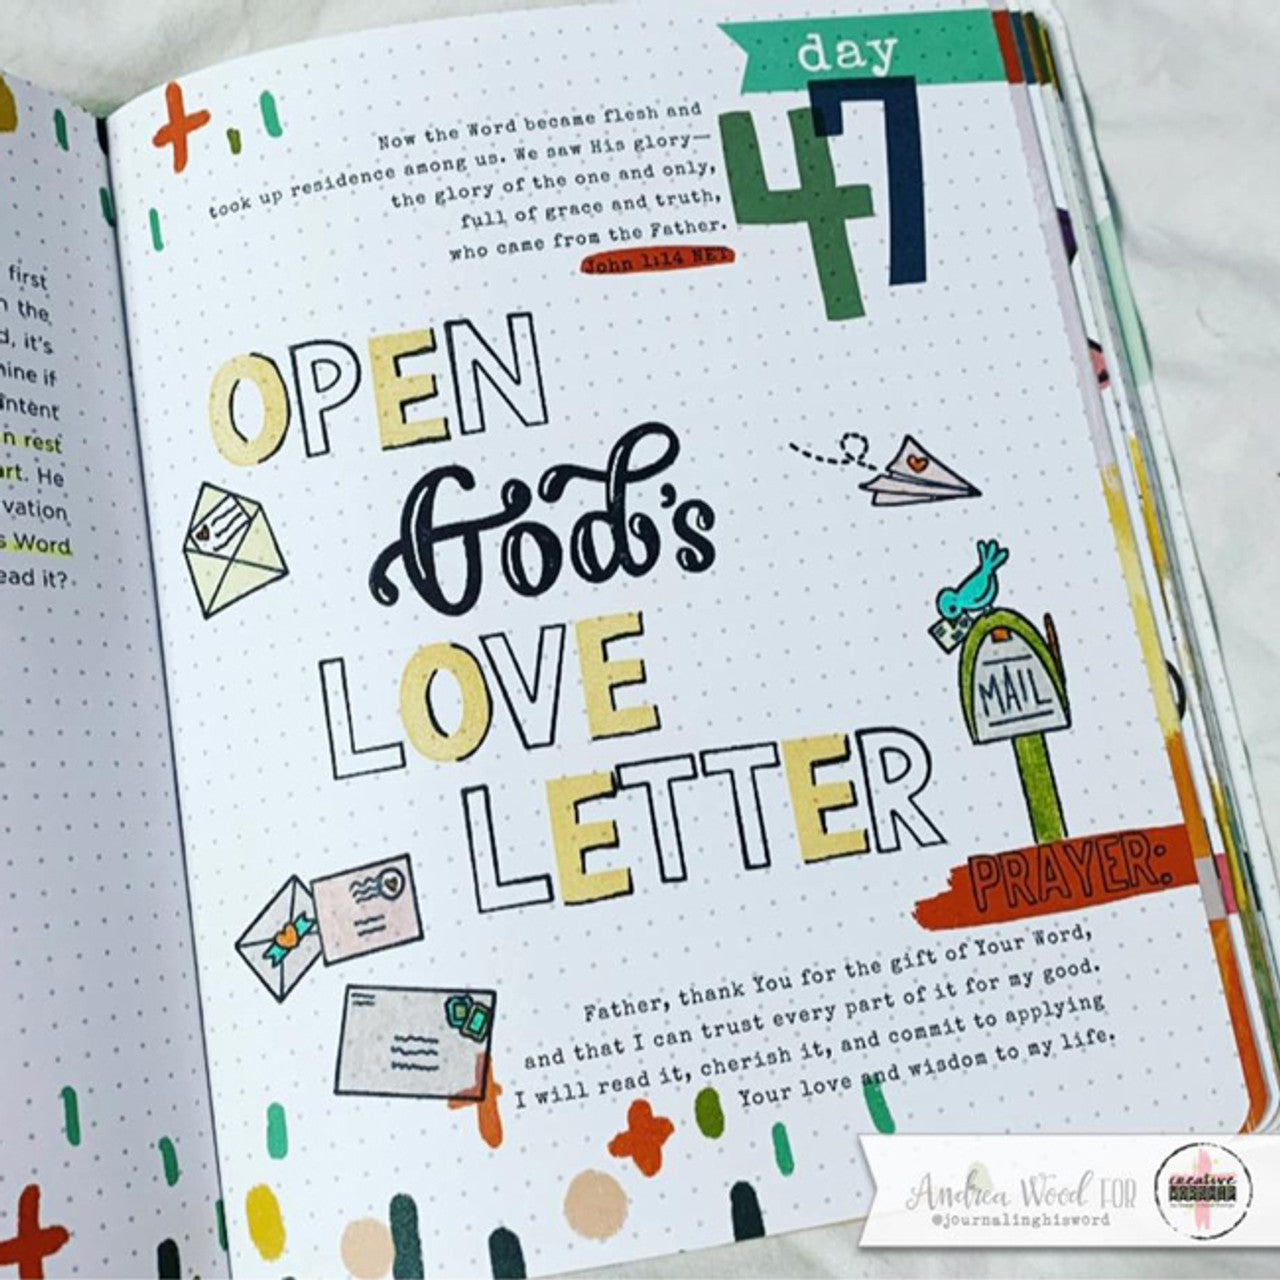 first
the
it's
mine if
intent
n rest
art. He
vation
s Word
ead it?
day
47
Now the Word became flesh and
took up residence among us. We saw His glory—
the glory of the one and only,
full of grace and truth,
who came from the Father.
John 1:14 NET
OPEN
God's
LOVE
LETTER
MAIL
PRAYER:
Father, thank You for the gift of Your Word,
and that I can trust every part of it for my good.
I will read it, cherish it, and commit to applying
Your love and wisdom to my life.
Andrea Wood FOR
@journalinghisword
creative